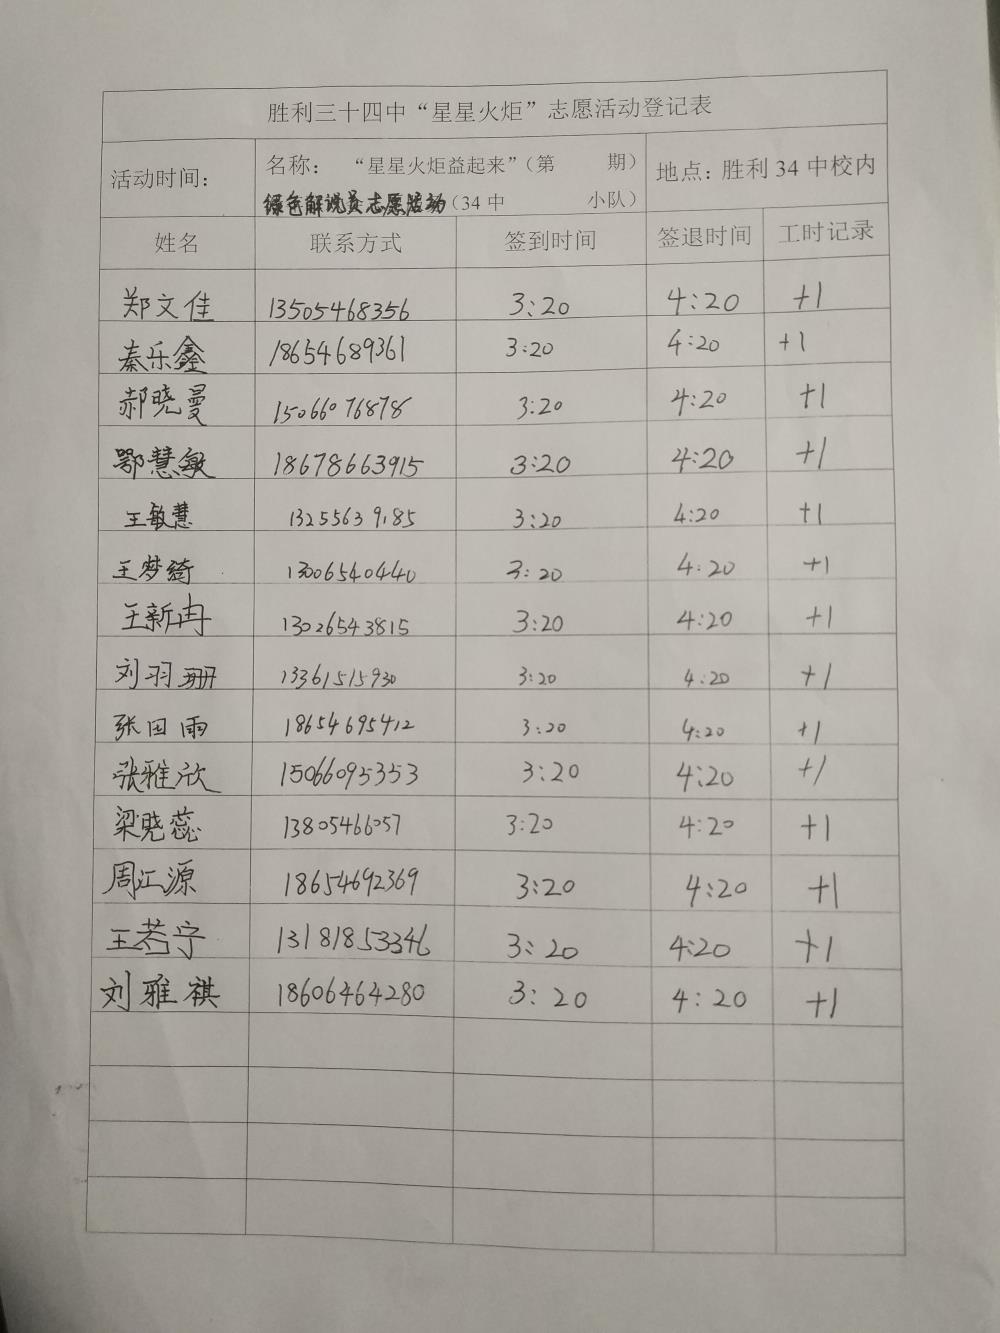 胜利三十四中“星星火炬”志愿活动登记表
活动时间： 名称： “星星火炬益起来”（第 期） 地点：胜利34中校内
绿色解说员志愿活动（34中 小队）
姓名 联系方式 签到时间 签退时间 工时记录
郑文佳 13505468356 3:20 4:20 +1
秦乐鑫 18654689361 3:20 4:20 +1
郝晓曼 15066076878 3:20 4:20 +1
鄂慧敏 18678663915 3:20 4:20 +1
王敏慧 13255639185 3:20 4:20 +1
王梦绮 13006540440 3:20 4:20 +1
王新冉 13026543815 3:20 4:20 +1
刘羽珊 13361515930 3:20 4:20 +1
张田雨 18654695412 3:20 4:20 +1
张雅欣 15066095353 3:20 4:20 +1
梁晓蕊 13805466057 3:20 4:20 +1
周江源 18654692369 3:20 4:20 +1
王若宁 13181853346 3:20 4:20 +1
刘雅祺 18606464280 3:20 4:20 +1